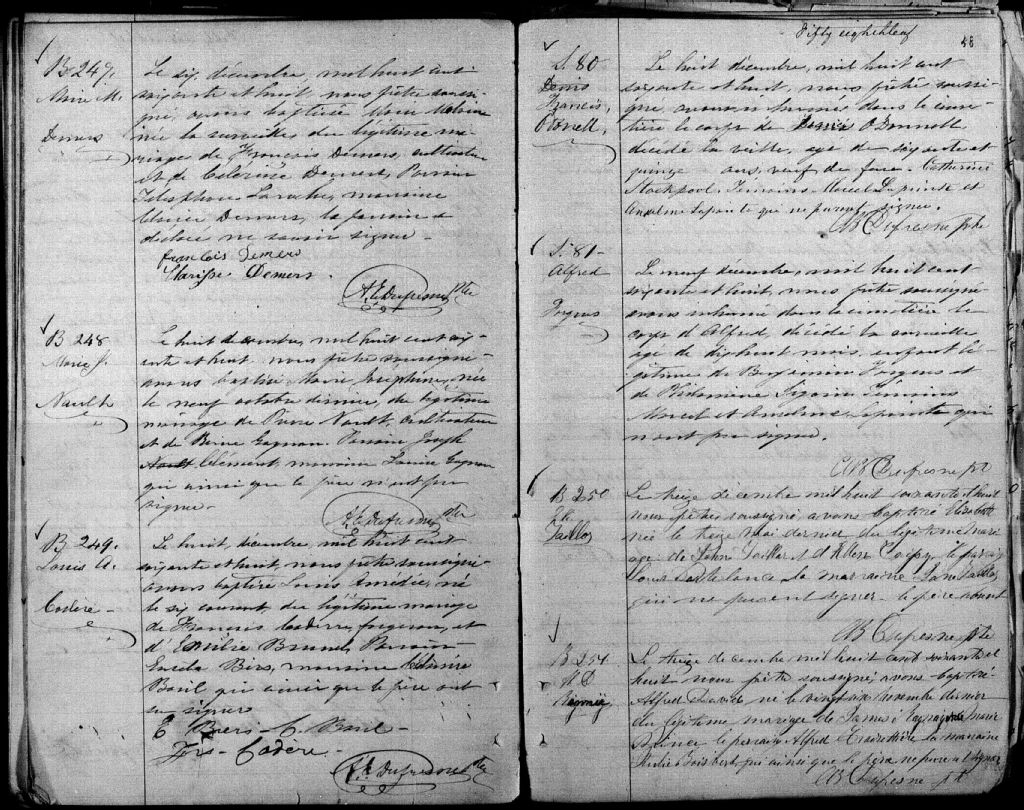 B 247.
Marie M.
Demers
Le six décembre, mil huit cent
soixante et huit, nous prêtre soussi-
gné, avons baptisé Marie Malvina
née la surveille du légitime ma-
riage de François Demers, cultivateur
et de Célérine Demers, Parrain
Télesphore Laroche, marraine
Clarice Demers, la parrain a
déclaré ne savoir signer.
François Demers
Clarisse Demers
A. E. Dufresne Ptre
B 248
Marie J.
Nault
Le huit decembre, mil huit cent soix-
ante et huit nous prêtre soussigné
avons baptisé Marie Joséphine, née
le neuf octobre dernier, du légitime
mariage de Pierre Nault, cultivateur
et de Gagnon. Parrain Joseph
Clément, marraine Louise Gagnon
qui ainsi que le père n'ont pu
signer.
A. E. Dufresne Ptre
B 249.
Louis A.
Codère
Le huit, décembre, mil huit cent
soixante et huit, nous prêtre soussigné
avons baptisé Louis Amedée, né
le six courant du légitime mariage
de François Coderre, forgeron, et
d'Emilie Brunel, Parrain
Bires, marraine
Bonil qui ainsi que le père ont
su signer
E Biers C. Bonil
Frs. Codère
A. E. Dufresne Ptre
Fifty eighth leaf
58
S. 80
Denis
Francis,
O'Donell,
Le huit décembre, mil huit cent
soixante et huit, nous prêtre soussi-
gné avons inhumé dans le cime-
tière le corps de Denis O'Donnell
décédé la veille, age de soixante et
quinze ans, veuf de feue Catherine
Stockpool. Témoins Moïse Lapointe et
Anselme Lapointe qui ne purent signer.
AE Dufresne ptre
S. 81
Alfred
Forgues
Le neuf décembre, mil huit cent
soixante et huit, nous prêtre soussigné
avons inhumé dans le cimetière le
corps d'Alfred, décédé la surveille
age de dix huit mois, enfant lé-
gitime de Benjamin Forgues et
de Philomène Témoins
et Anselme Lapointe qui
n'ont pu signer.
AE Dufresne ptr
B 250
Elth
Taillor
Le treize decembre mil huit soixante et huit
nous prêtre soussigné avons baptisé Elizabeth
née le treize Mai dernier du légitime mari-
age de John Taillor et d'Ellen le parrain
la marraine Jane Taillor
qui ne peuvent signer le père absent
AE Dufresne ptre
B 251
A D
Le treize decembre mil huit cent soixante et
huit nous prêtre soussigné avons baptisé
Alfred David né le vingt un novembre dernier
du légitime mariage de James et Marie
le parrain Alfred la marraine
qui ainsi que le père ne peuvent signer
AE Dufresne ptr